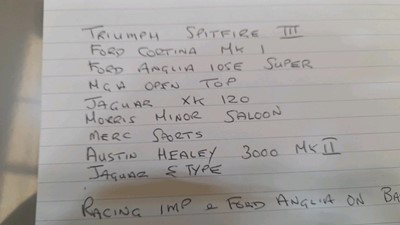 TRIUMPH SPITFIRE III
FORD CORTINA MK 1
FORD ANGLIA 105E SUPER
MGA OPEN TOP
JAGUAR XK 120
MORRIS MINOR SALOON
MERC SPORTS
AUSTIN HEALEY 3000 MK II
JAGUAR E TYPE
RACING IMP & FORD ANGLIA ON BA